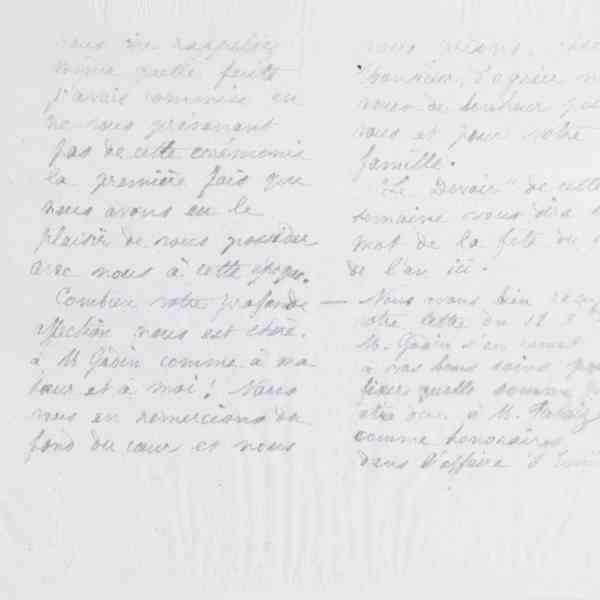 vous me rappelez
même quelle faute
j'avais commise en
ne vous prévenant
pas de cette cérémonie
la première fois que
nous avons eu le
plaisir de vous posséder
avec nous à cette époque.
Combien votre profonde
affection nous est chère.
à M Godin comme à ma
sœur et à moi! Nous
vous en remercions du
fond du cœur et nous
vous prions,
d'agréer
vœux de bonheur
vous et pour votre
famille.
"Le Devoir" de cette
semaine vous dira
mot de la fête du
de l'an ici.
— Nous avons bien reçu
votre lettre du 12
M. Godin s'en remet
à vos bons soins pour
fixer quelle somme
être due à M.
comme honoraires
dans l'affaire